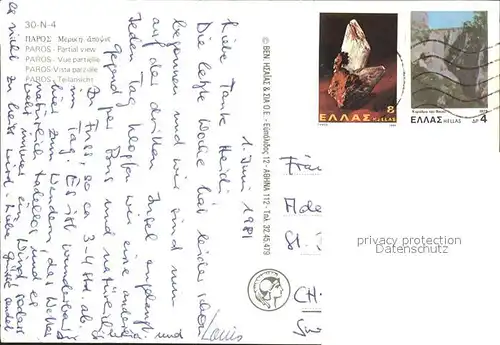 30-N-4
ΠΑΡΟΣ Μερική άποψις
PAROS - Partial view
PAROS - Vue partielle
PAROS - Vista parziale
PAROS - Teilansicht
© BEN. HSAIAS & ΣΙΑ Ο.Ε - Εὐπόλιδος 12 - ΑΘΗΝΑ 112 - Tel. 32.45.479
ΕΛΛΑΣ HELLAS 8
ΕΛΛΑΣ HELLAS ΔΡ 4
1. Juni 1981
Liebe Tante Heidi,
Die letzte Woche hat leider schon
begonnen und wir sind nun
auf der dritten Insel angelangt.
Jeden Tag klopfen wir eine andere
Gegend per Bus und natürlich
zu Fuss, so ca 3-4 Std. ab.
im Tag. Es ist wunderbar
hier zum Wandern, das Wetter
natürlich tadellos und es
weht immer ein Wind, sodass
es nicht zu heiss wird. Liebe Grüsse
und
Louis
Fräu
Ade
St.
CH-
privacy protection
Datenschutz